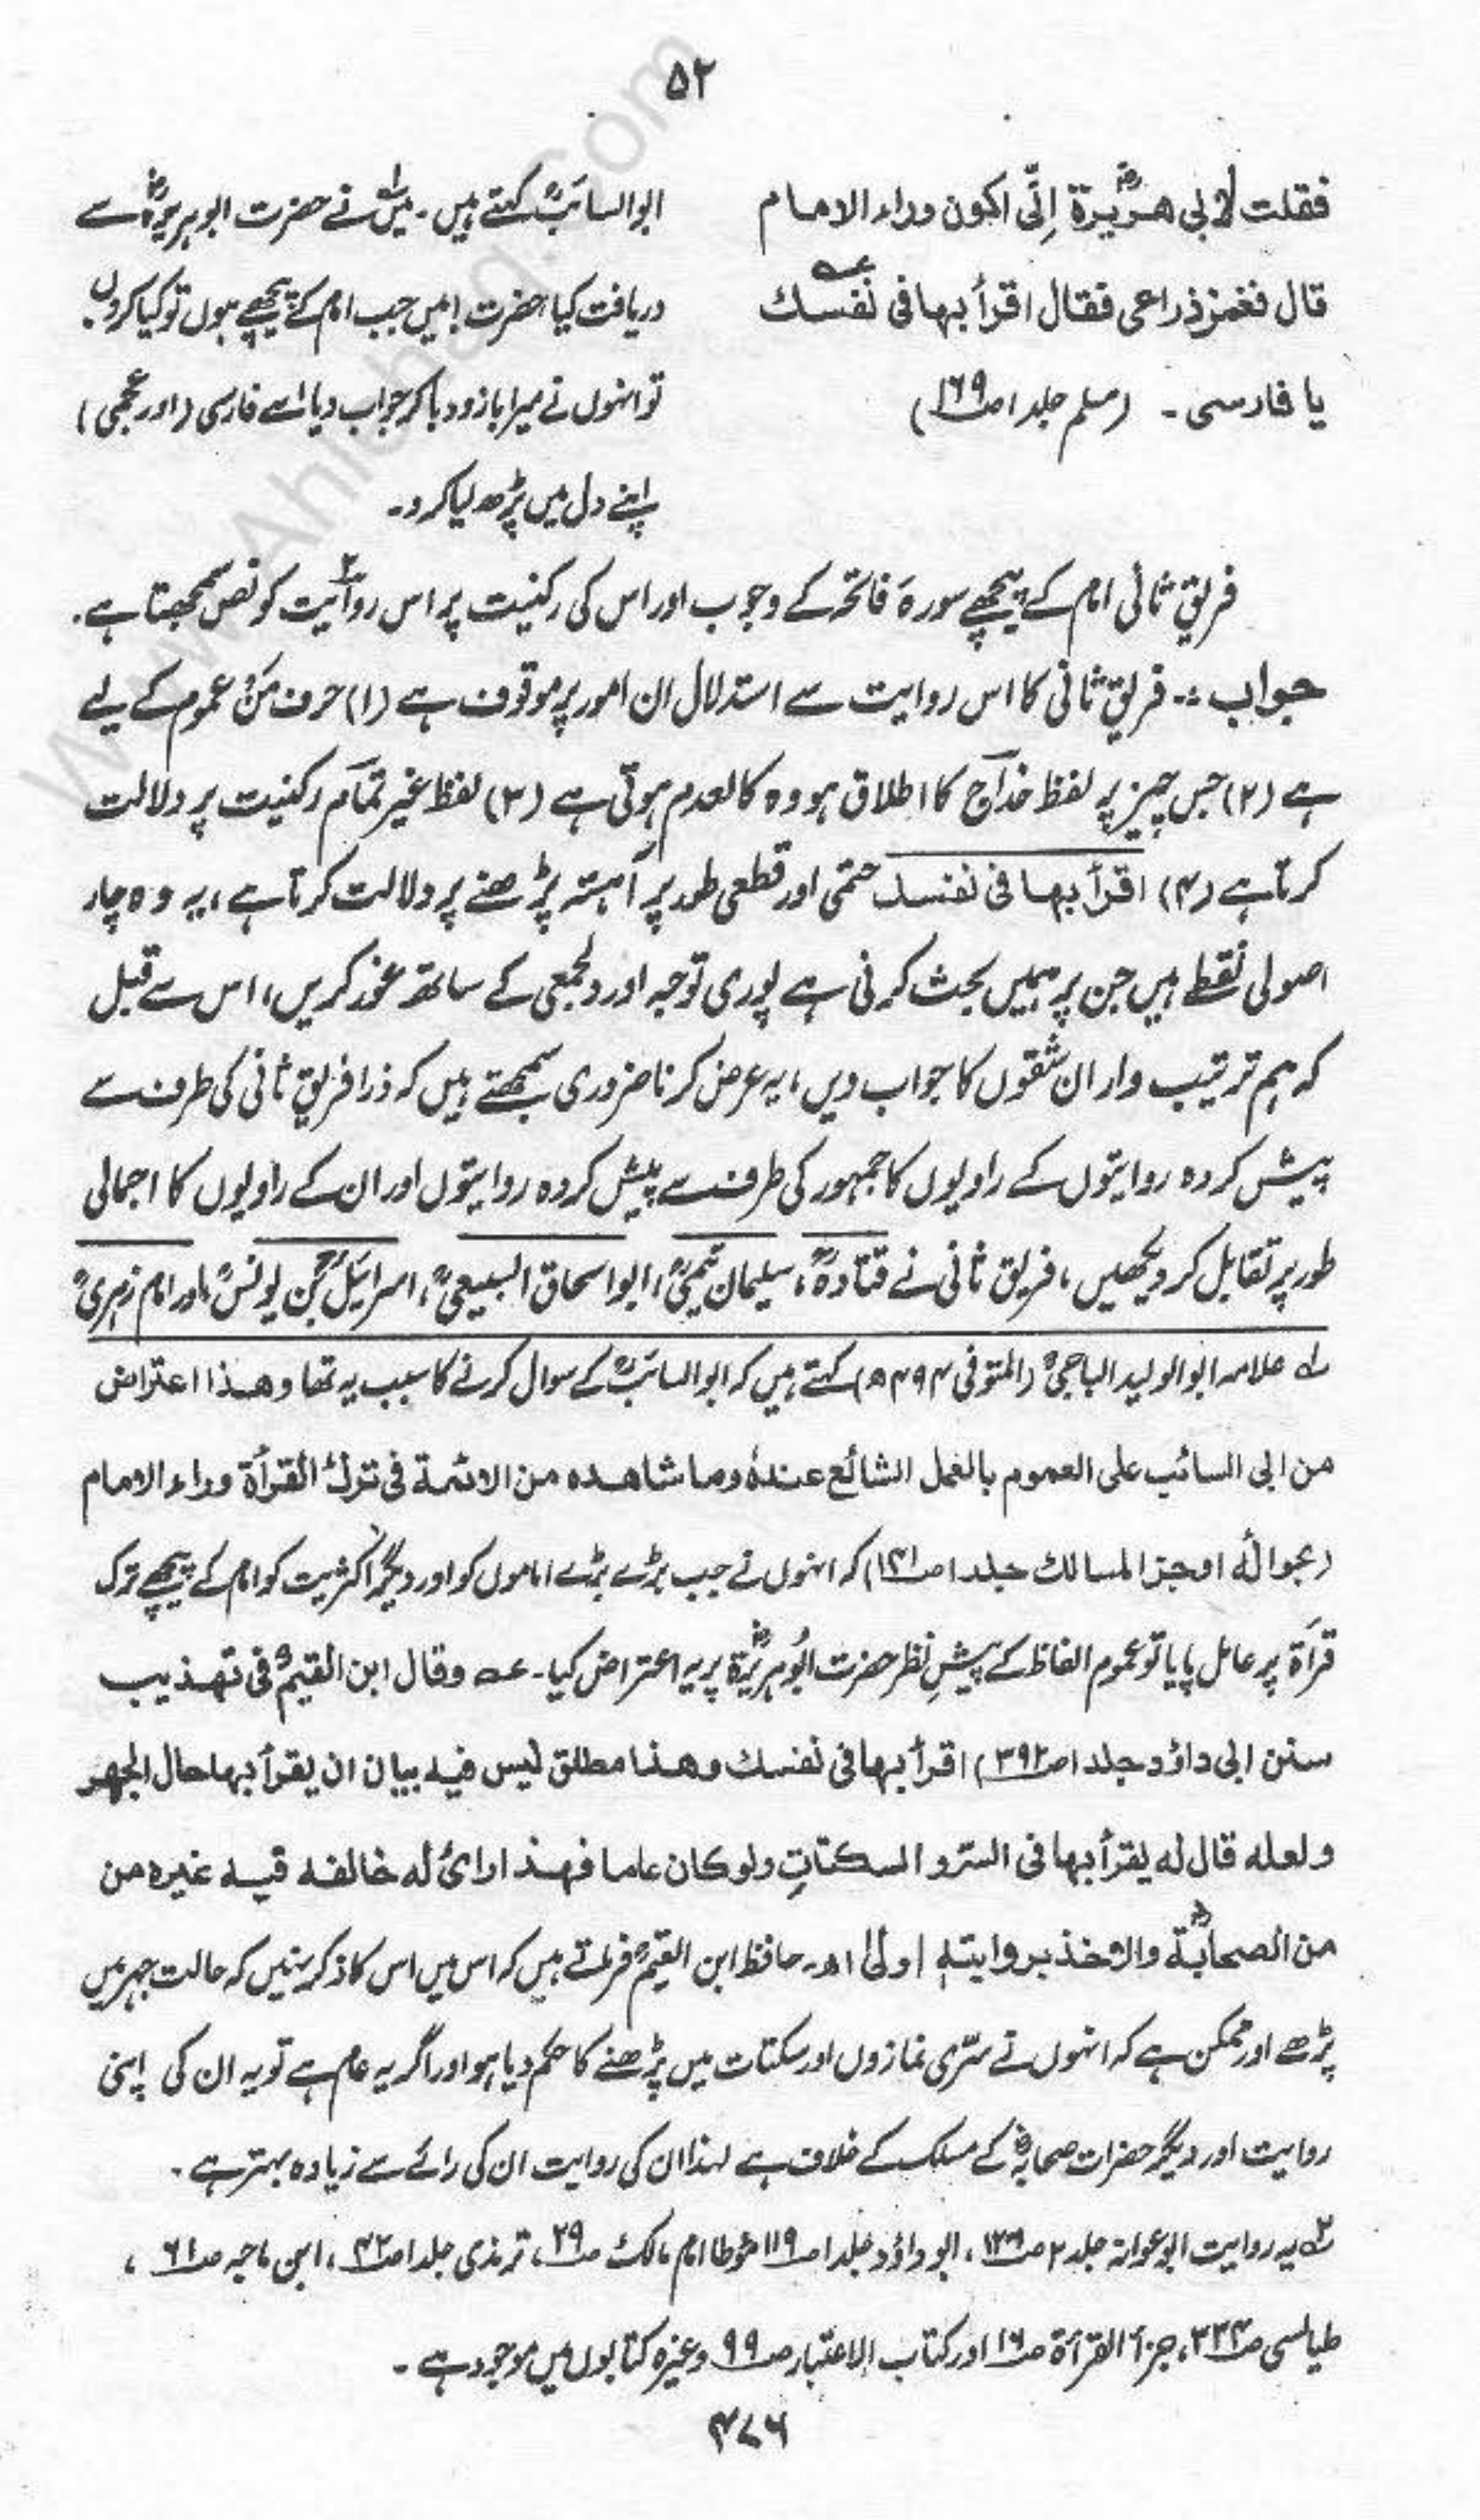 ۵۲
فقلت لابی ھریرۃؓ اِنّی اکون وراء الامام
قال فغمز ذراعی فقال اقرأ بہا فی نفسک عہ
یا فارسی ۔ (مسلم جلد ۱ ص۱۶۹)
ابوالسائبؒ کہتے ہیں ۔ میں۱ نے حضرت ابوہریرہؓ سے
دریافت کیا، حضرت! میں جب امام کے پیچھے ہوں تو کیا کروں
تو انہوں نے میرا بازو دبا کر جواب دیا اے فارسی (اور عجمی)
اپنے دل میں پڑھ لیا کرو۔
فریقِ ثانی امام کے پیچھے سورۂ فاتحہ کے وجوب اور اس کی رکنیت پر اس روایت۲ کو نص سمجھتا ہے۔
جواب :- فریقِ ثانی کا اس روایت سے استدلال ان امور پر موقوف ہے (۱) حرف مَنْ عموم کے لیے
ہے (۲) جس چیز پر لفظ خداج کا اطلاق ہو وہ کالعدم ہوتی ہے (۳) لفظ غیر تمام رکنیت پر دلالت
کرتا ہے (۴) اقرأ بہا فی نفسک حتمی اور قطعی طور پر آہستہ پڑھنے پر دلالت کرتا ہے، یہ وہ چار
اصولی نقطے ہیں جن پر ہمیں بحث کرنی ہے پوری توجہ اور دلجمعی کے ساتھ غور کریں، اس سے قبل
کہ ہم ترتیب وار ان شقوں کا جواب دیں، یہ عرض کرنا ضروری سمجھتے ہیں کہ ذرا فریقِ ثانی کی طرف سے
پیش کردہ روایتوں کے راویوں کا جمہور کی طرف سے پیش کردہ روایتوں اور ان کے راویوں کا اجمالی
طور پر تقابل کر دیکھیں، فریق ثانی نے قتادہؒ، سلیمان تیمیؒ، ابو اسحاق السبیعیؒ، اسرائیلؒ بن یونسؒ، اور امام زہریؒ
۱ علامہ ابو الولید الباجیؒ (المتوفی ۴۹۴ھ) کہتے ہیں کہ ابوالسائبؒ کے سوال کرنے کا سبب یہ تھا وھذا اعتراض
من ابی السائب علی العموم بالعمل الشائع عندہٗ وما شاھدہ من الائمۃ فی ترک القرأۃ وراء الامام
(بحوالہ اوجز المسالک جلد ۱ ص۱۴۱) کہ انہوں نے جب بڑے بڑے اماموں کو اور دیگر اکثریت کو امام کے پیچھے ترک
قرأۃ پر عامل پایا تو عموم الفاظ کے پیشِ نظر حضرت ابوہریرۃؓ پر یہ اعتراض کیا۔ عہ وقال ابن القیمؒ فی تھذیب
سنن ابی داؤد جلد ۱ ص۳۹۲) اقرأ بہا فی نفسک وھذا مطلق لیس فیہ بیان ان یقرأ بہا حال الجھر
ولعلہ قال لہ یقرأ بہا فی السرّ والسکتاتِ ولو کان عاما فھذا رائ لہ خالفہ فیہ غیرہ من
من الصحابۃؓ والاخذ بروایتہٖ اولیٰ اھ۔ حافظ ابن القیمؒ فرماتے ہیں کہ اس میں اس کا ذکر نہیں کہ حالت جہر میں
پڑھے اور ممکن ہے کہ انہوں نے سرّی نمازوں اور سکتات میں پڑھنے کا حکم دیا ہو اور اگر یہ عام ہے تو یہ ان کی اپنی
روایت اور دیگر حضرات صحابہؓ کے مسلک کے خلاف ہے لہٰذا ان کی روایت ان کی رائے سے زیادہ بہتر ہے۔
۲ یہ روایت ابوعوانہ جلد ۲ ص ، ابوداؤد جلد ۱ ص۱۱۹ مؤطا امام مالک ص۲۹، ترمذی جلد ۱ ص۴۲، ابن ماجہ ص۶۱،
طیالسی ص۳۳۴، جزأ القرأۃ ص۱۶ اور کتاب الاعتبار ص۹۹ وغیرہ کتابوں میں موجود ہے۔
۴۷۶
www.Ahlehaq.Com